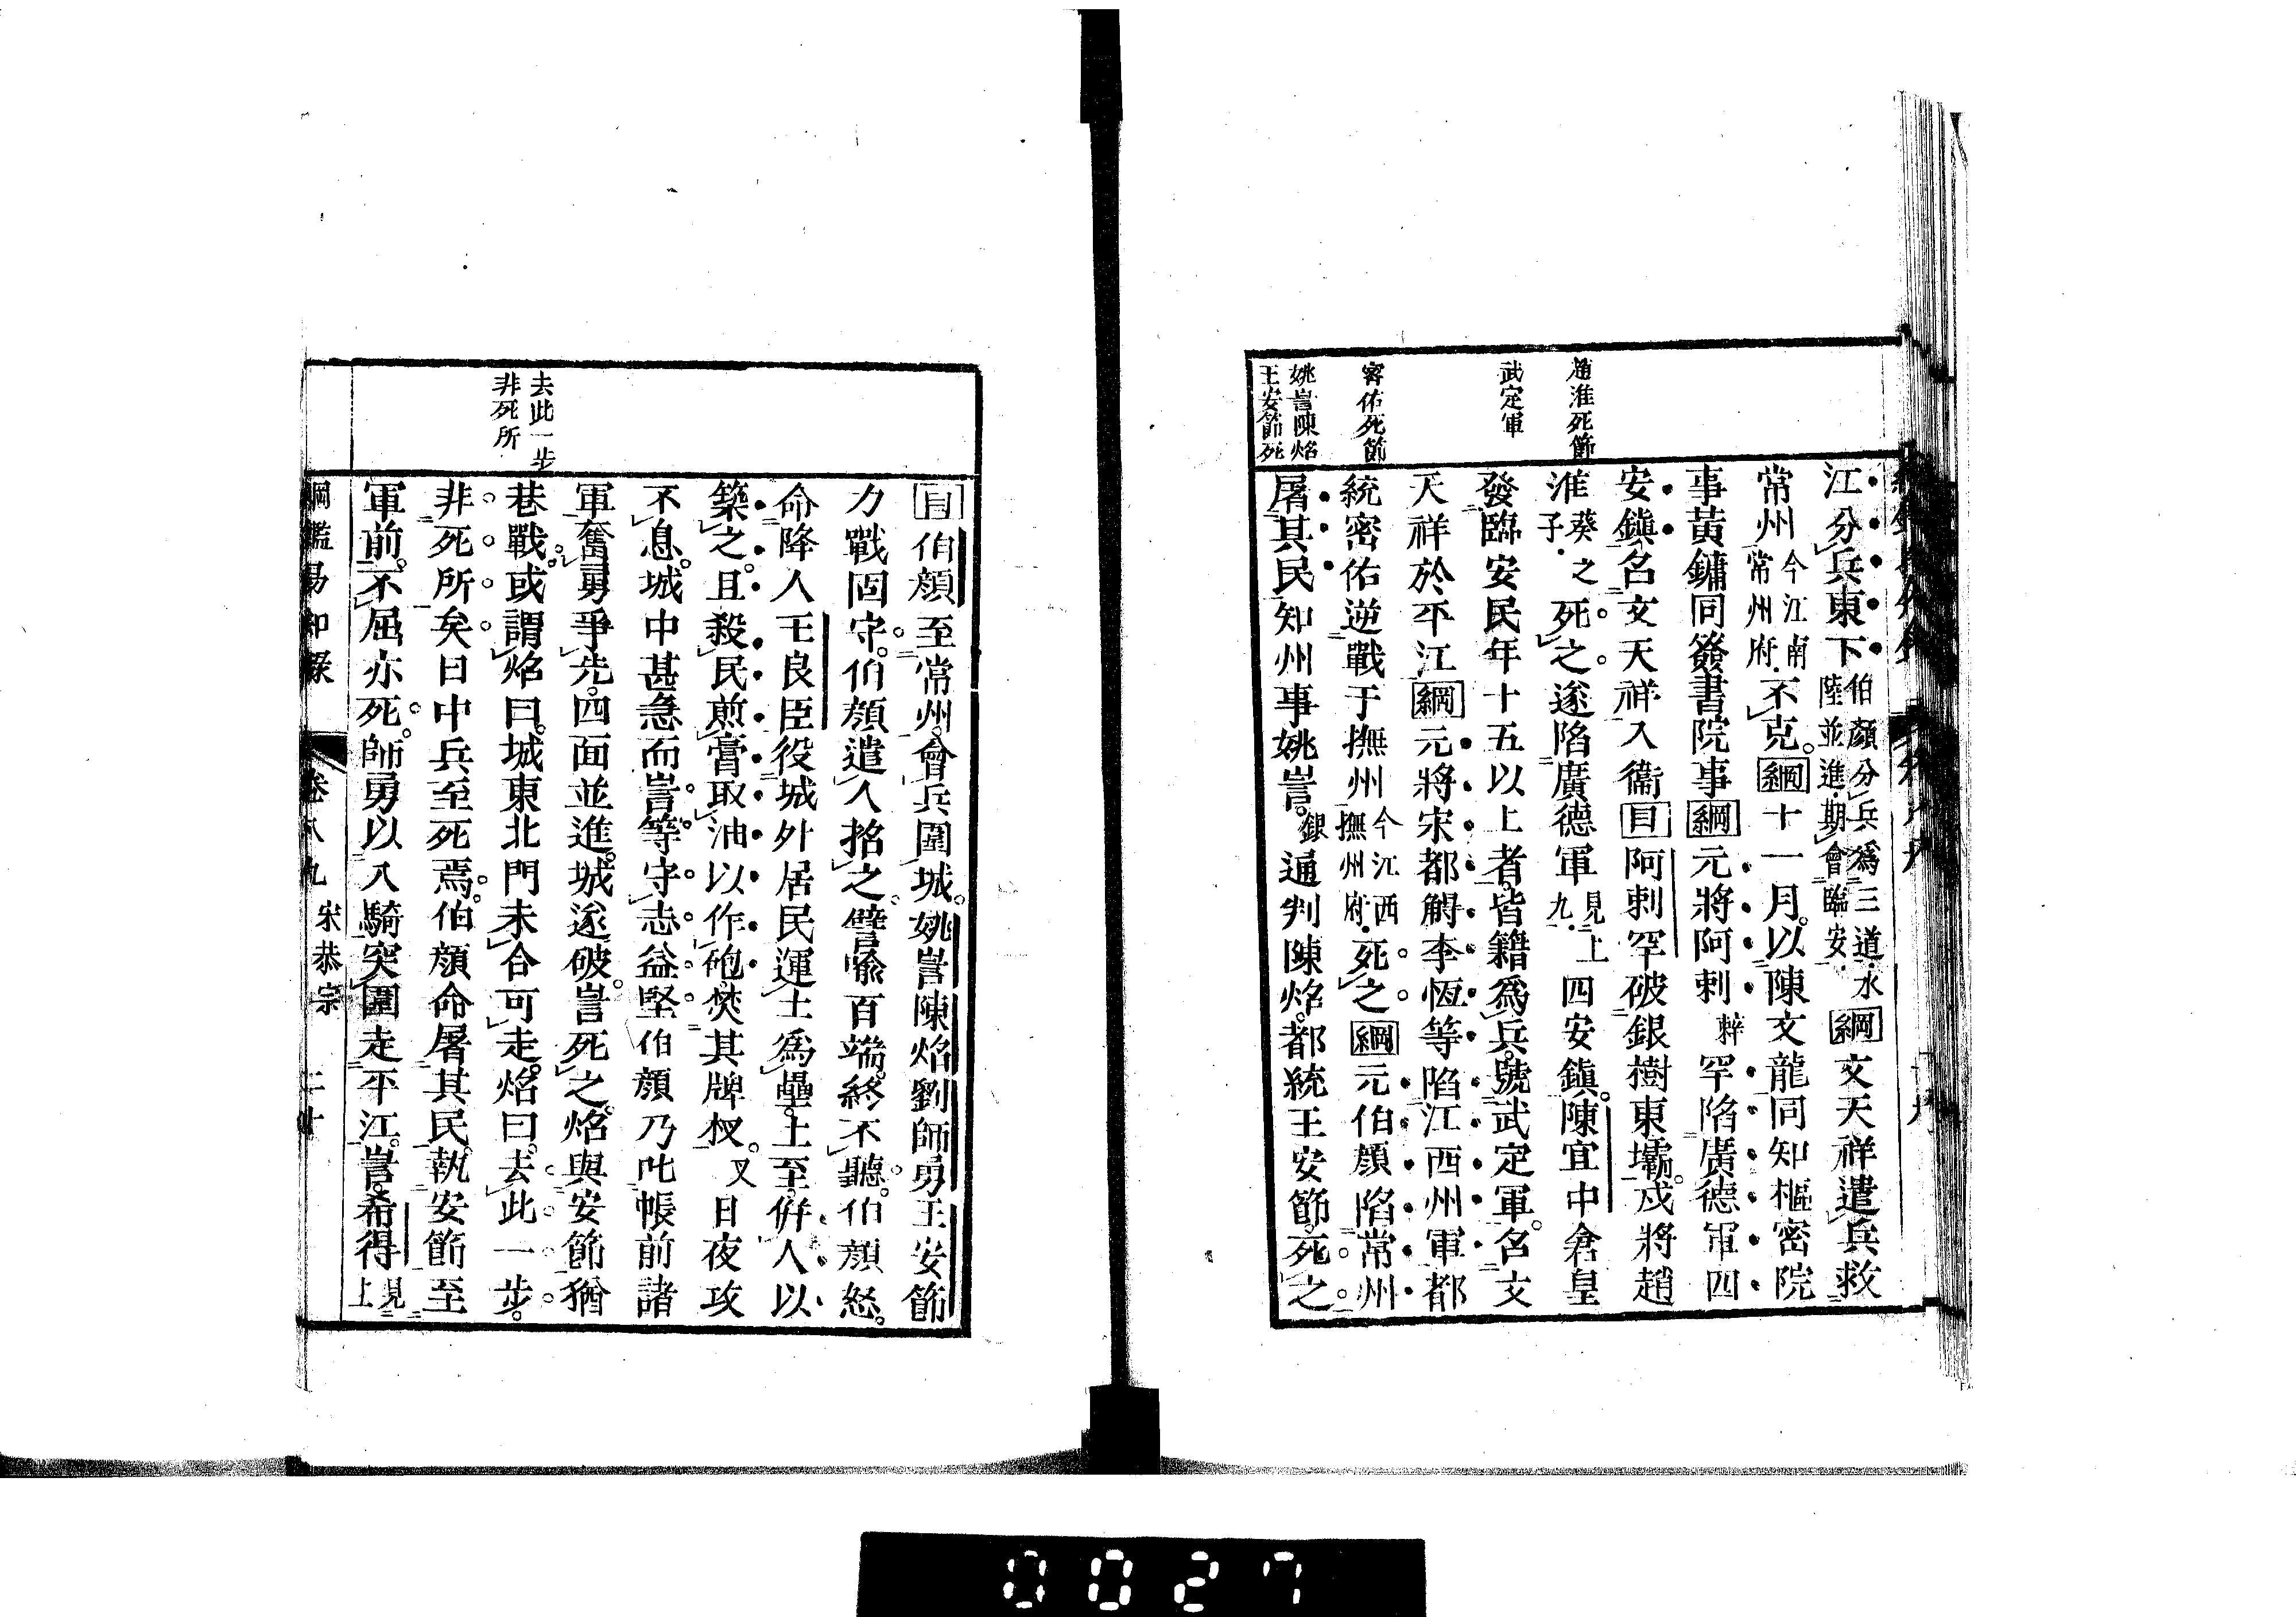 趙淮死節
武定軍
密佑死節
姚訔陳炤
王安節死
江分兵東下伯顏分兵爲三道水陸並進期會臨安綱文天祥遣兵救
常州今江南常州府不克綱十一月以陳文龍同知樞密院
事黃鏞同簽書院事綱元將阿剌罕陷廣德軍四
安鎮召文天祥入衞目阿剌罕破銀樹東壩戍將趙
淮葵之子死之遂陷廣德軍見上九四安鎮陳宜中倉皇
發臨安民年十五以上者皆籍爲兵號武定軍召文
天祥於平江綱元將宋都䚟李恆等陷江西州軍都
統密佑逆戰于撫州今江西撫州府死之綱元伯顏陷常州
屠其民知州事姚訔銀通判陳炤都統王安節死之
去此一步
非死所
目伯顏至常州會兵圍城姚訔陳炤劉師勇王安節
力戰固守伯顏遣人招之譬喻百端終不聽伯顏怒
命降人王良臣役城外居民運土爲壘土至倂人以
築之且殺民煎膏取油以作砲焚其牌杈叉日夜攻
不息城中甚急而訔等守志益堅伯顏乃叱帳前諸
軍奮勇爭先四面並進城遂破訔死之炤與安節猶
巷戰或謂炤曰城東北門未合可走炤曰去此一步
非死所矣日中兵至死焉伯顏命屠其民執安節至
軍前不屈亦死師勇以八騎突圍走平江訔希得見上
綱鑑易知錄 卷八九 宋恭宗 二十